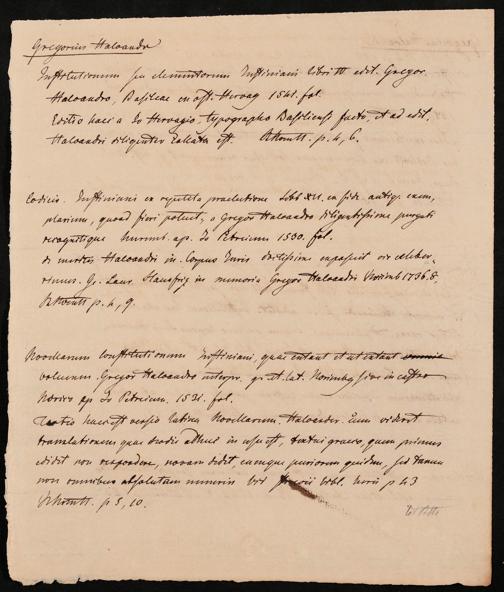 Gregorius Haloander
Institutionum seu elementorum Justiniani libri IV edit. Gregor.
Haloandro, Basileae ex off. Hervag. 1541. fol.
Editio haec a Jo Hervagio, typographo Basiliensi facta, et ad edit.
Haloandri diligenter est. p. 4, 6.
Codicis Justiniani ex repetita praelectione libri XII. ex fide antiq. exem-
plarium, quoad fieri potuit, a Gregor Haloandro diligentissime purgati
recognitique ap. Jo Petreium 1530. fol.
de meritis Haloandri in Corpus Juris doctissime exposuit vir celeber-
rimus. in memoria Gregor Haloandri 1736. 8.
p. 4, 9.
Novellarum constitutionum Justiniani, quae extant et ut extant
volumen. Gregor Haloandro interpr. gr. et. lat. in castro
Norico ap Jo Petreium. 1531. fol.
haec est versio latina Novellarum. Haloander. Cum videret
translationem quae hodie adhuc in usu est, textui graeco, quem primus
edidit non respondere, novam dedit, eamque puriorem quidem, sed tamen
non omnibus absolutam numeris bibl. p 43
p 5, 10.